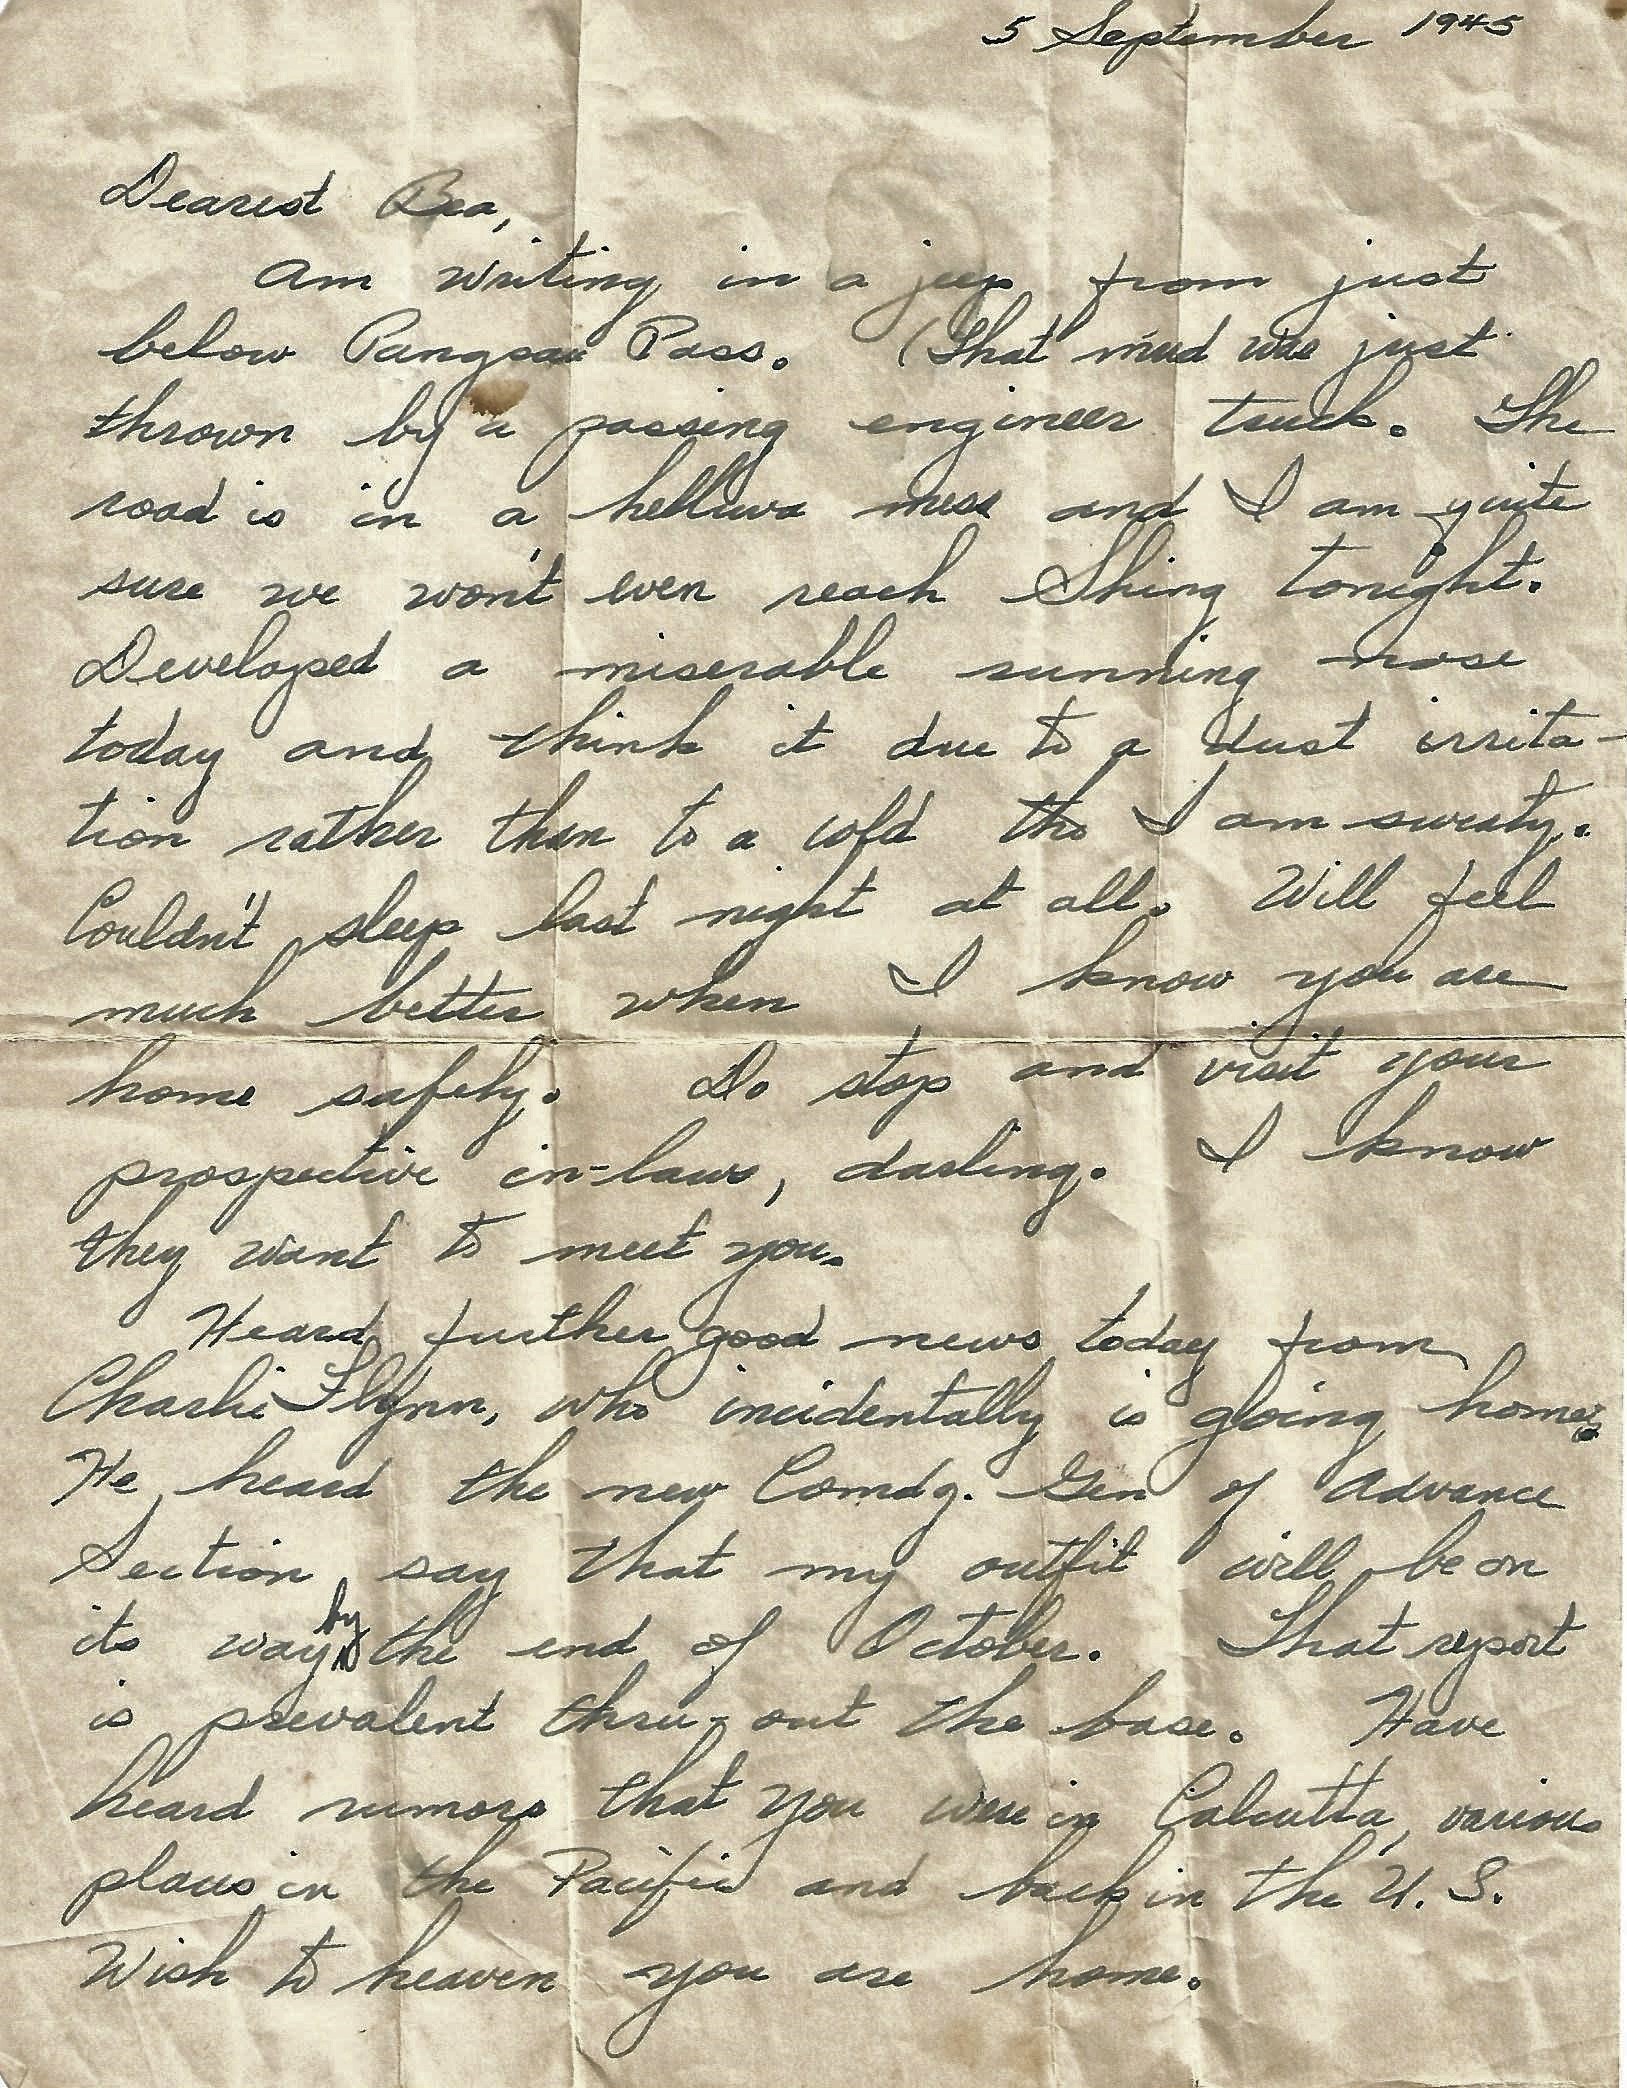 5 September 1945
Dearest Bea,
Am writing in a jeep from just
below Pangsau Pass. (That mud was just
thrown by a passing engineer truck. The
road is in a helluva mess and I am quite
sure we won't even reach Shing tonight.
Developed a miserable running nose
today and think it due to a dust irrita-
tion rather than to a cold tho I am sweaty.
Couldn't sleep last night at all. Will feel
much better when I know you are
home safely. Do stop and visit your
prospective in-laws, darling. I know
they want to meet you.
Heard further good news today from
Charlie Flynn, who incidentally is going home.
He heard the new Comdg. Gen of Advance
Section say that my outfit will be on
its way by the end of October. That report
is prevalent thru-out the base. Have
heard rumors that you were in Calcutta, various
places in the Pacific and back in the U.S.
Wish to heaven you are home.